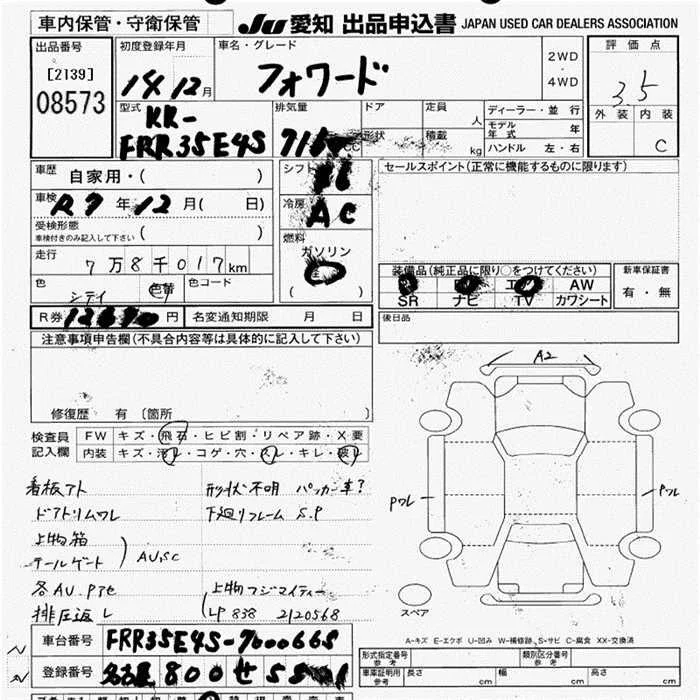 車内保管・守衛保管
JU 愛知 出品申込書 JAPAN USED CAR DEALERS ASSOCIATION
出品番号
[2139]
08573
初度登録年月
14 12月
車名・グレード
フォワード
2WD
・
4WD
評価点
3.5
外装 内装
C
型式
KR-
FRR35E4S
排気量
CC
ドア
形状
定員
人
積載
kg
ディーラー・並行
モデル年式 年
ハンドル 左・右
車歴
自家用・( )
車検
R7年12月( 日)
受検形態
車検付きのみ記入して下さい ( )
走行
7万8千017km
色
シティ
色替
色コード
R券
円
名変通知期限 月 日
シフト
F6
冷房
AC
燃料
ガソリン
( )
セールスポイント(正常に機能するものに限ります)
装備品(純正品に限り○をつけてください)
AW
SR ナビ TV カワシート
新車保証書
有・無
後日品
注意事項申告欄(不具合内容等は具体的に記入して下さい)
修復歴 有 〔箇所 〕
検査員
記入欄
FW キズ・飛石・ヒビ割・リペア跡・X要
内装 キズ・汚レ・コゲ・穴・スレ・キレ・破レ
看板アト
ドアトリムワレ
上物箱
テールゲート
AU,SC
各AU.Pアセ
排圧返し
形状不明 パッカー車?
下廻りフレーム S.P
上物フジマイティー
LP 838 2120568
A2
Pワレ
Pワレ
スペア
A-キズ E-エクボ U-凹み W-補修跡 S-サビ C-腐食 XX-交換済
車台番号
FRR35E4S-7000668
登録番号
名古屋 800 せ
形式指定番号
参考
類別区分番号
参考
車庫証明用
参考
長さ cm
幅 cm
高さ cm